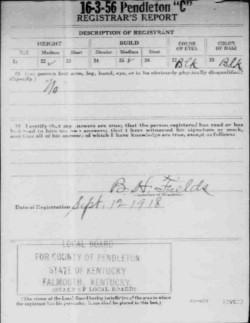 16-3-56 Pendleton "C"
REGISTRAR'S REPORT
DESCRIPTION OF REGISTRANT
HEIGHT BUILD COLOR OF EYES COLOR OF HAIR
Tall Medium Short Slender Medium Stout
21 22 23 24 25 26 27 Blk 28 Blk
29 Has person lost arm, leg, hand, eye, or is he obviously physically disqualified?
(Specify.)
No
30 I certify that my answers are true; that the person registered has read or has
had read to him his own answers; that I have witnessed his signature or mark,
and that all of his answers of which I have knowledge are true, except as follows:
B. H. Fields
Date of Registration Sept. 12 1918
LOCAL BOARD
FOR COUNTY OF PENDLETON
STATE OF KENTUCKY
FALMOUTH, KENTUCKY
(STAMP OF LOCAL BOARD)
(The stamp of the Local Board having jurisdiction of the area in which
the registrant has his permanent home shall be placed in this box.)